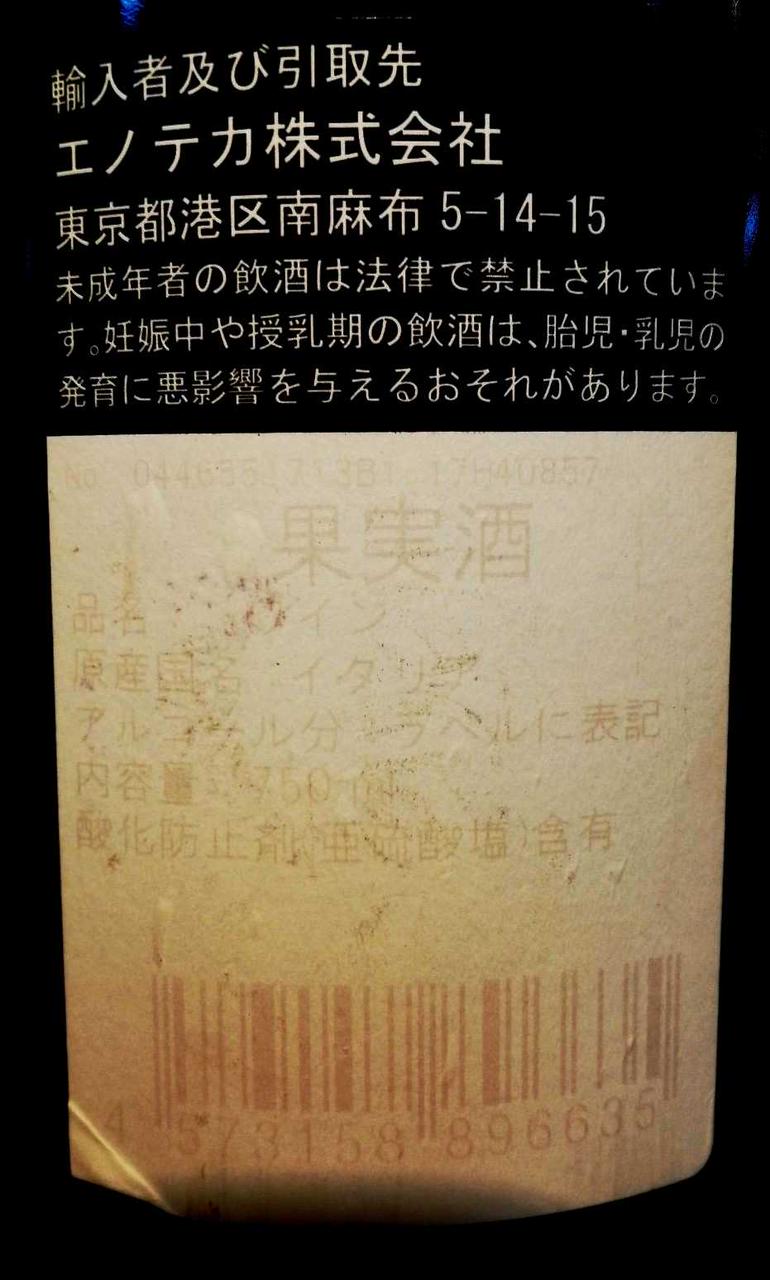 輸入者及び引取先
エノテカ株式会社
東京都港区南麻布 5-14-15
未成年者の飲酒は法律で禁止されていま
す。妊娠中や授乳期の飲酒は、胎児・乳児の
発育に悪影響を与えるおそれがあります。
No 044635 713B1 17H40857
果実酒
品名：ワイン
原産国名：イタリア
アルコール分：ラベルに表記
内容量：750 ml
酸化防止剤(亜硫酸塩)含有
4 573158 896635